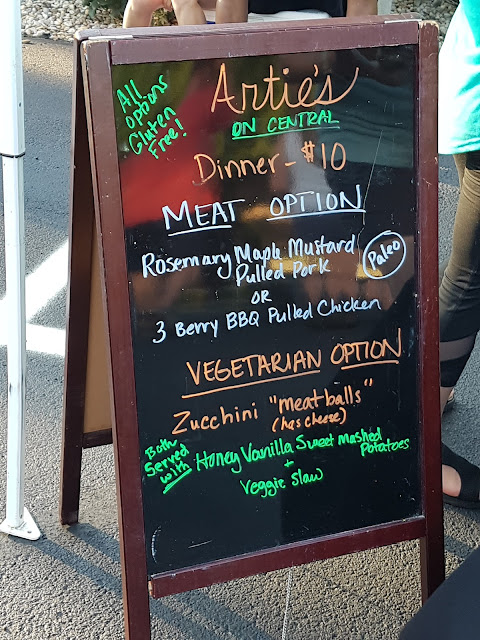 All
options
Gluten
Free!
Artie's
ON CENTRAL
Dinner - $10
MEAT OPTION
Rosemary Maple Mustard
Pulled Pork
Paleo
OR
3 Berry BBQ Pulled Chicken
VEGETARIAN OPTION
Zucchini "meatballs"
(has cheese)
Both
Served
with
Honey Vanilla Sweet mashed
Potatoes
+
Veggie Slaw